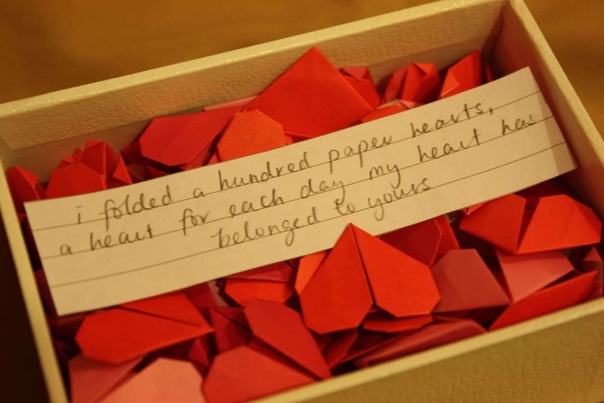 i folded a hundred paper hearts,
a heart for each day my heart has
belonged to yours